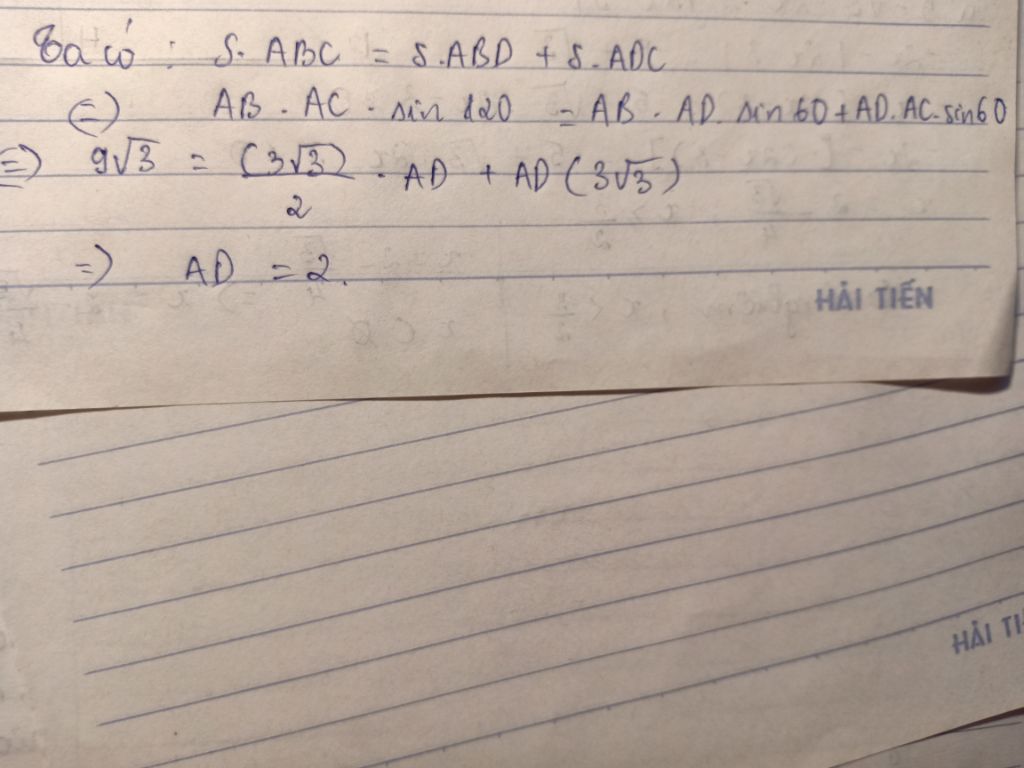 Ta có : S.ABC = S.ABD + S.ADC
(=) AB . AC . sin 120 = AB . AD. sin 60 + AD. AC. sin60
=) 9√3 = (3√3)/2 . AD + AD (3√3)
=) AD = 2.
HẢI TIẾN
HẢI TI